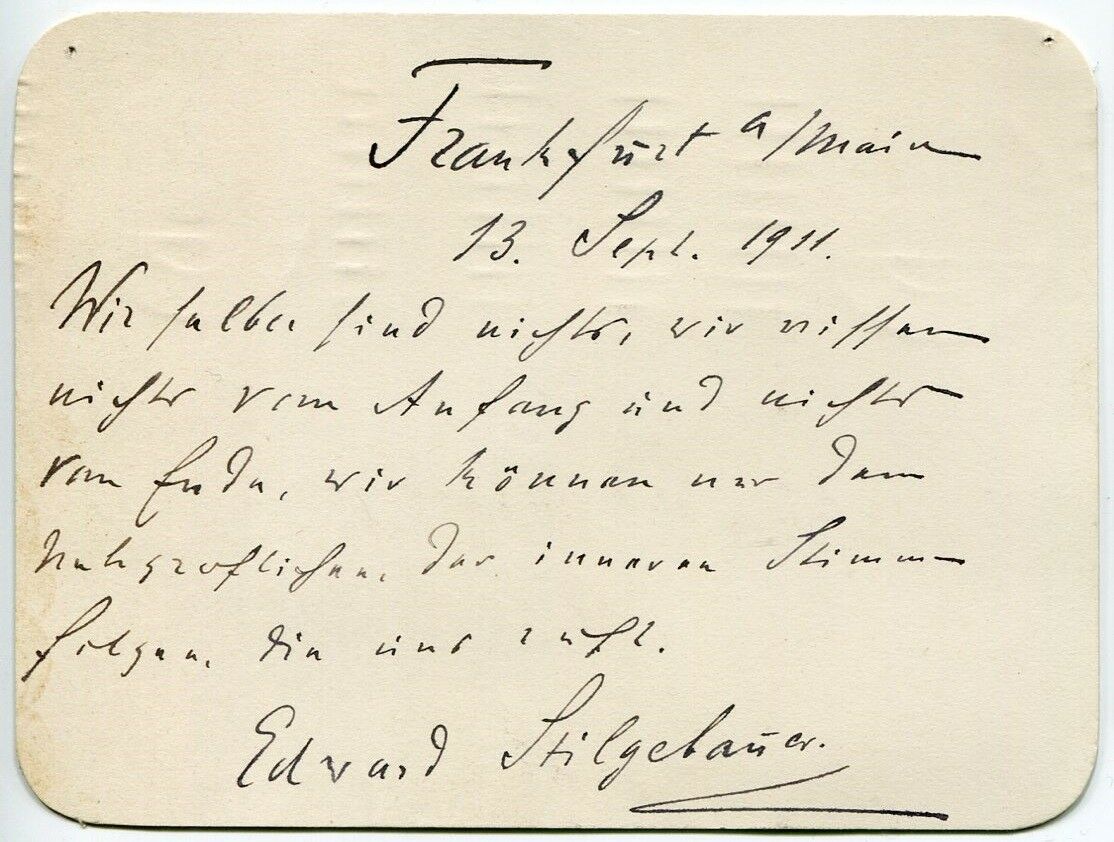 Frankfurt a/Main
13. Sept. 1911.
Wir selber sind nichts, wir wissen
nichts vom Anfang und nichts
vom Ende, wir können nur dem
der inneren Stimme
folgen, die uns ruft.
Edward Stilgebauer.